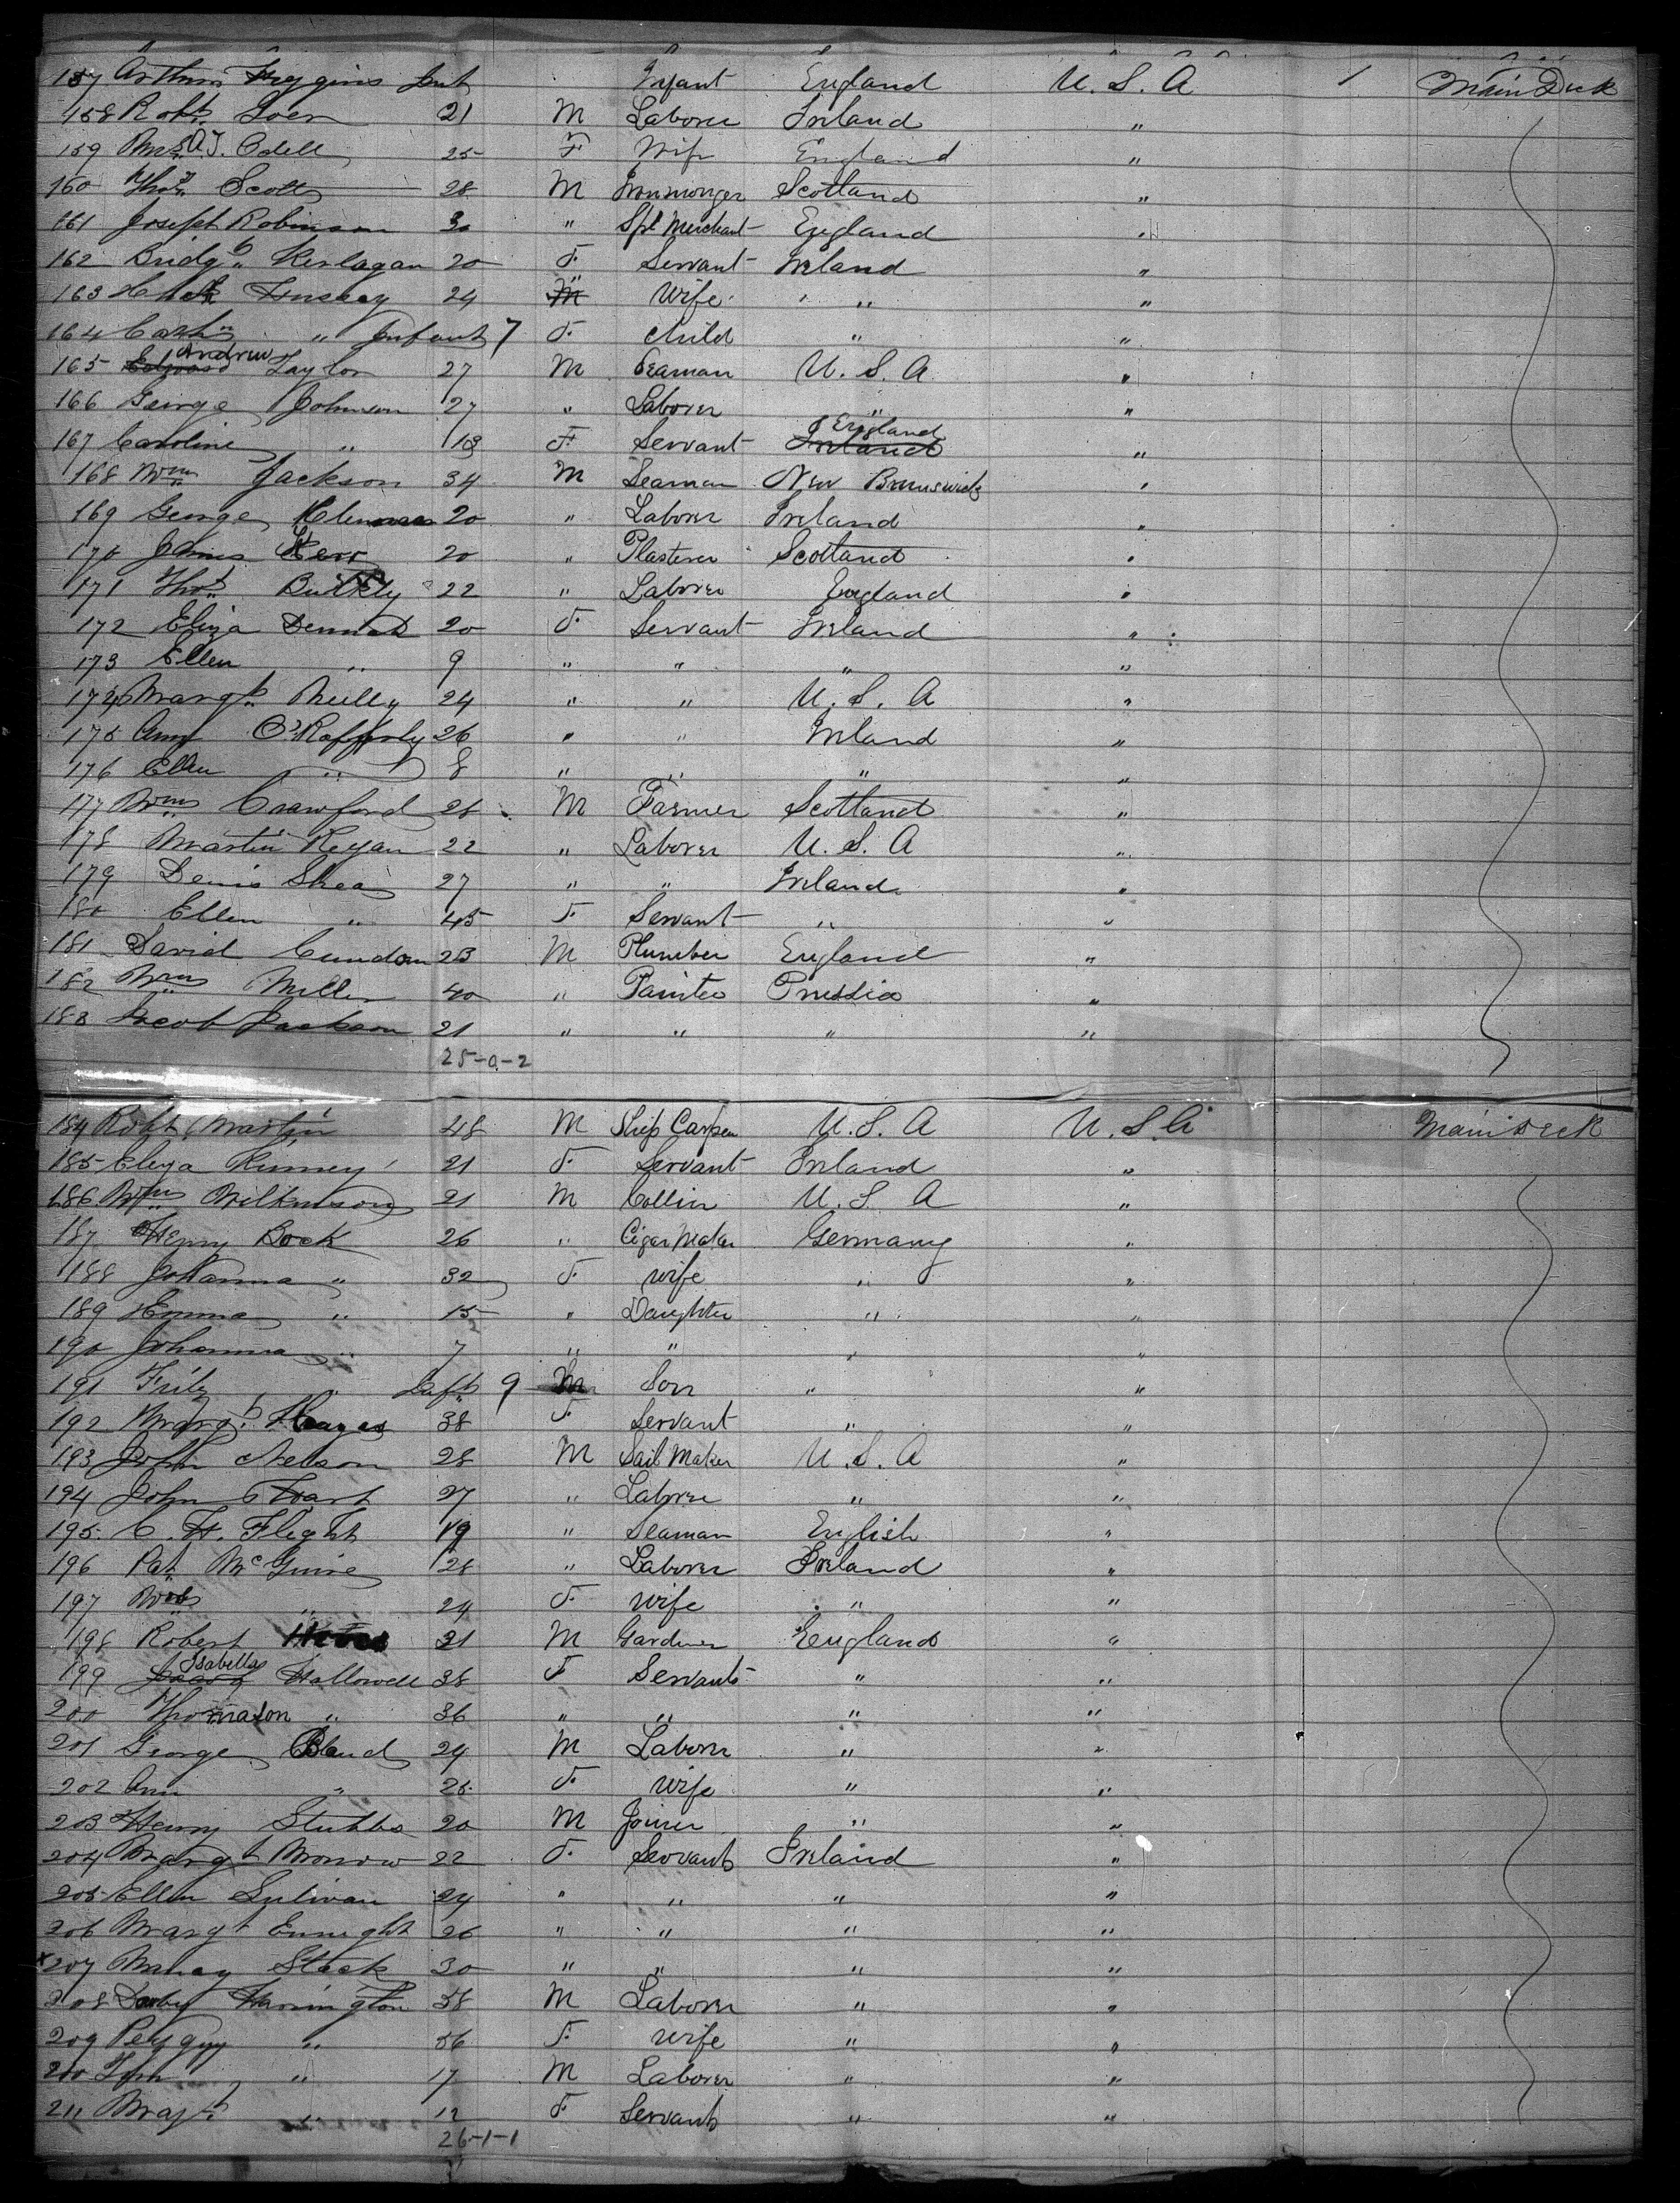 157 Arthur Higgins Inft Infant England U. S. A 1 Main Deck
158 Robt 21 M Laborer Ireland "
159 Mrs A.J. Odell 25 F Wife England "
160 Thos Scott 28 M Ironmonger Scotland "
161 Joseph Robinson 30 " Spt Merchant England "
162 Bridgt Kerlagan 20 F Servant Ireland "
163 Hussey 24 M Wife " "
164 Cathn " Infant 7 F child " "
165 Edward Andrew Taylor 27 M Seaman U. S. A "
166 George Johnson 27 " Laborer " "
167 Caroline " 18 F Servant Ireland England "
168 Wm Jackson 34 M Seaman New Brunswick "
169 George 20 " Laborer Ireland "
170 James Kerr 20 " Plasterer Scotland "
171 Thos Bulkly 22 " Laborer England "
172 Eliza 20 F Servant Ireland "
173 Ellen " 9 " " " "
174 Margt 24 " " U. S. A "
175 Ann O'Rafferty 26 " " Ireland "
176 Ellen " 8 " " " "
177 Wm Crawford 26 M Farmer Scotland "
178 Martin Reyan 22 " Laborer U. S. A "
179 Denis Shea 27 " " Ireland "
180 Ellen " 45 F Servant " "
181 David Cundom 23 M Plumber England "
182 Wm Miller 40 " Painter Prussia "
183 Jacob Jackson 21 " " " "
25-0-2
184 Robt Martin 48 M Ship Carpen U. S. A U. S. A Main Deck
185 Eliza Kinney 21 F Servant Ireland "
186 Wm Wilkinson 21 M Collier U. S. A "
187 Henry Bock 26 " Cigar Maker Germany "
188 Johanna " 32 F wife " "
189 Emma " 15 " Daughter " "
190 Johanna " 7 " " " "
191 Fritz " Inft 9 M Son " "
192 Margt Hayes 38 F Servant " "
193 John Nelson 28 M Sail Maker U. S. A "
194 John 27 " Laborer " "
195 C. H. Flight 19 " Seaman English "
196 Pat McGuire 28 " Laborer Ireland "
197 Mrs " 24 F wife " "
198 Robert 31 M Gardener England "
199 Isabella Hallowell 38 F Servant " "
200 Thomason " 36 " " " "
201 George Bland 24 M Laborer " "
202 Ann " 25 F wife " "
203 Henry Stubbs 20 M Joiner " "
204 Margt Morrow 22 F Servant Ireland "
205 Ellen Sulivan 24 " " " "
206 Margt Enright 26 " " " "
x 207 Stack 30 " " " "
208 Darby Harrington 58 M Laborer " "
209 Peggy " 56 F wife " "
210 " 17 M Laborer " "
211 Margt " 12 F Servant " "
26-1-1